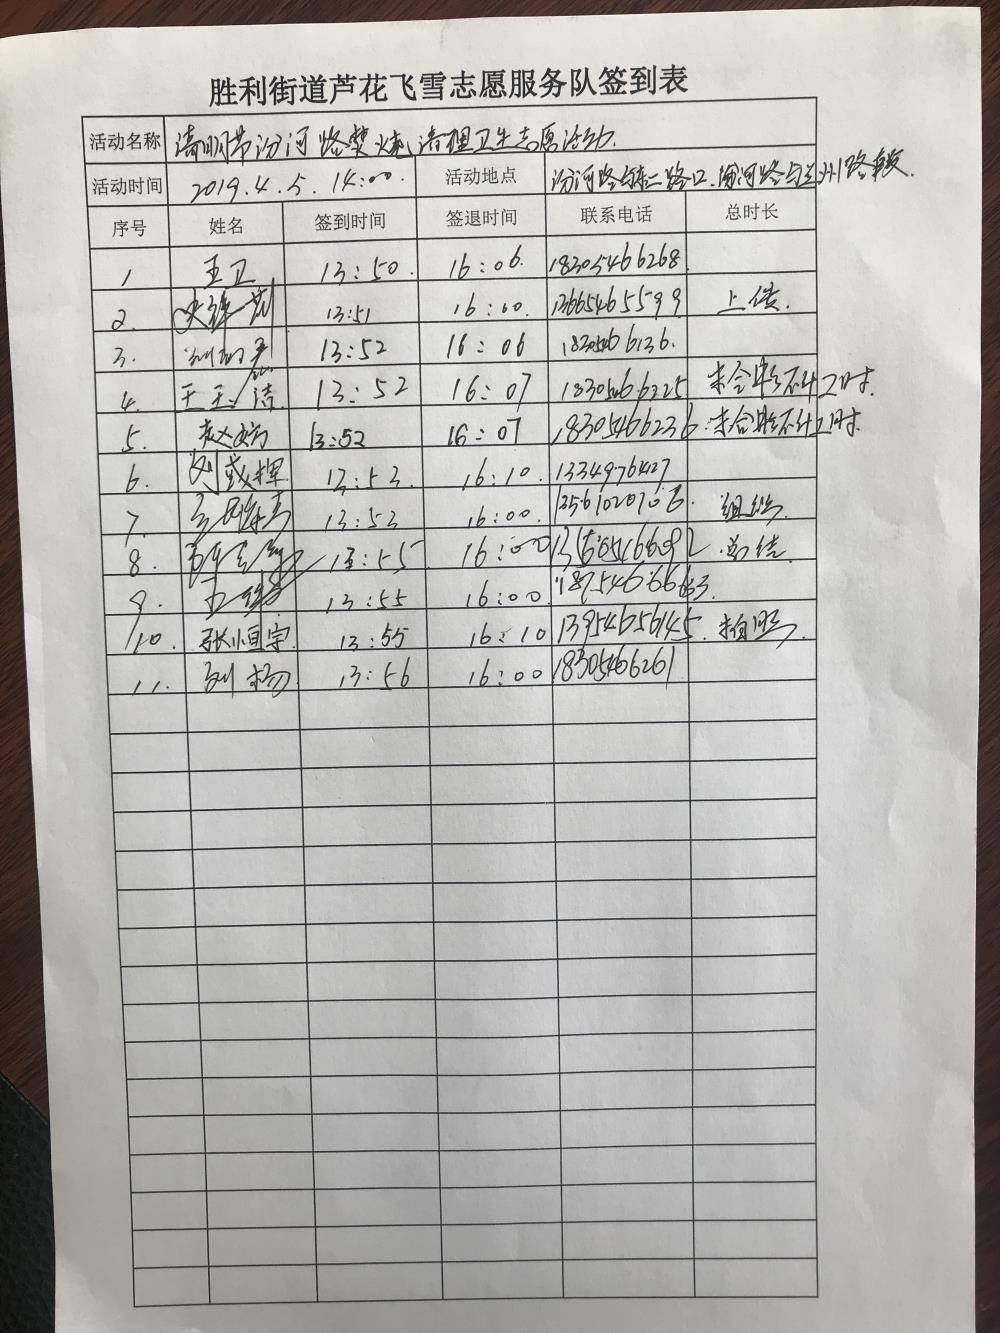 胜利街道芦花飞雪志愿服务队签到表
活动名称 清明节汾河路焚烧清理卫生志愿活动.
活动时间 2019.4.5.14:00. 活动地点 汾河路与东二路口.汾河路与兰州路
序号 姓名 签到时间 签退时间 联系电话 总时长
1 王卫 13:50. 16:06. 18305466268
2. 13:51 16:00. 13665465599 上传.
3. 13:52 16:06 18305466136.
4. 王玉洁. 13:52 16:07 18305466225 未合影不计工时.
5. 13:52 16:07 18305466236 .未合影不计工时.
6. 13:53. 16:10. 13349976427
7. 13:53 16:00. 组织.
8. 13:55 16:00 13665466092 .总结.
9. 13:55 16:00
10. 张恒宇 13:55 16:10 13954656145. 拍照.
11. 刘杨 13:56 16:00 18305466261